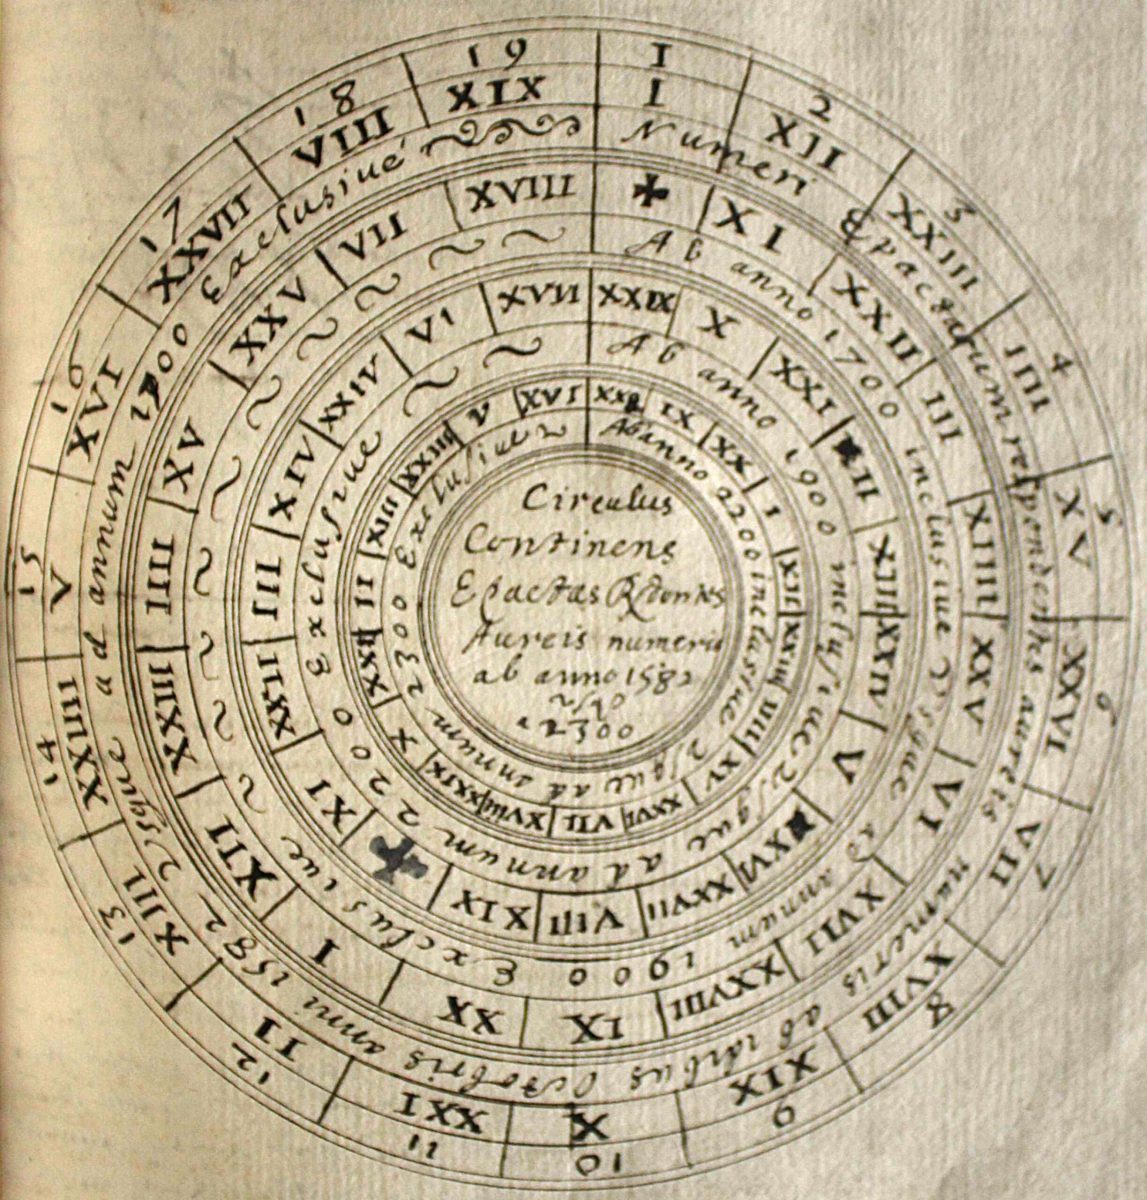 1 2 3 4 5 6 7 8 9 10 11 12 13 14 15 16 17 18 19
I XII XXIII IIII XV XXVI VII XVIII XIX X XXI II XIII XXIIII V XVI XXVII VIII XIX
Numeri Epactarum respondentes aureis numeris ab idibus Octobris anni 1582 Vsque ad annum 1700 Exclusiué
✠ XI XXII III XIIII XXV VI XVII XXVIII IX XX I XII XXIII IIII XV XXV VII XVIII
Ab anno 1700 inclusiue Vsque ad annum 1900 Exclusiue
XXIX X XXI XIII XXIV V XXVII VIII XIX ✠ XI XXII III XIV XXIV VI XVII
Ab anno 1900 inclusiue Vsque ad annum 2200 Exclusiue
IX XX I XII XXIII IIII XV XXVI VII XVIII XXIX X XXII II XIII XXIIII V XVI
Ab anno 2200 inclusiue Vsque ad annum 2300 Exclusiue
Circulus
Continens
Epactas
Aureis numeris
ab anno 1582
2300